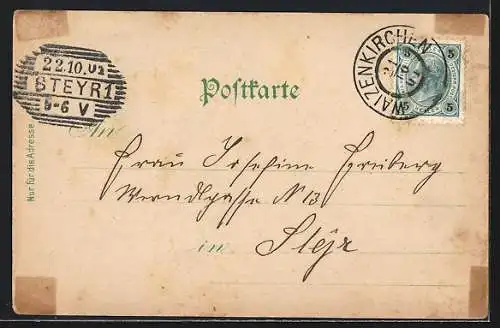 22.10.01
STEYR 1
5-6 V
WAIZENKIRCHEN
5 5
Postkarte
Nur für die Adresse
An
Frau Josefine Freiberg
Werndlgasse N 13
in Steyr